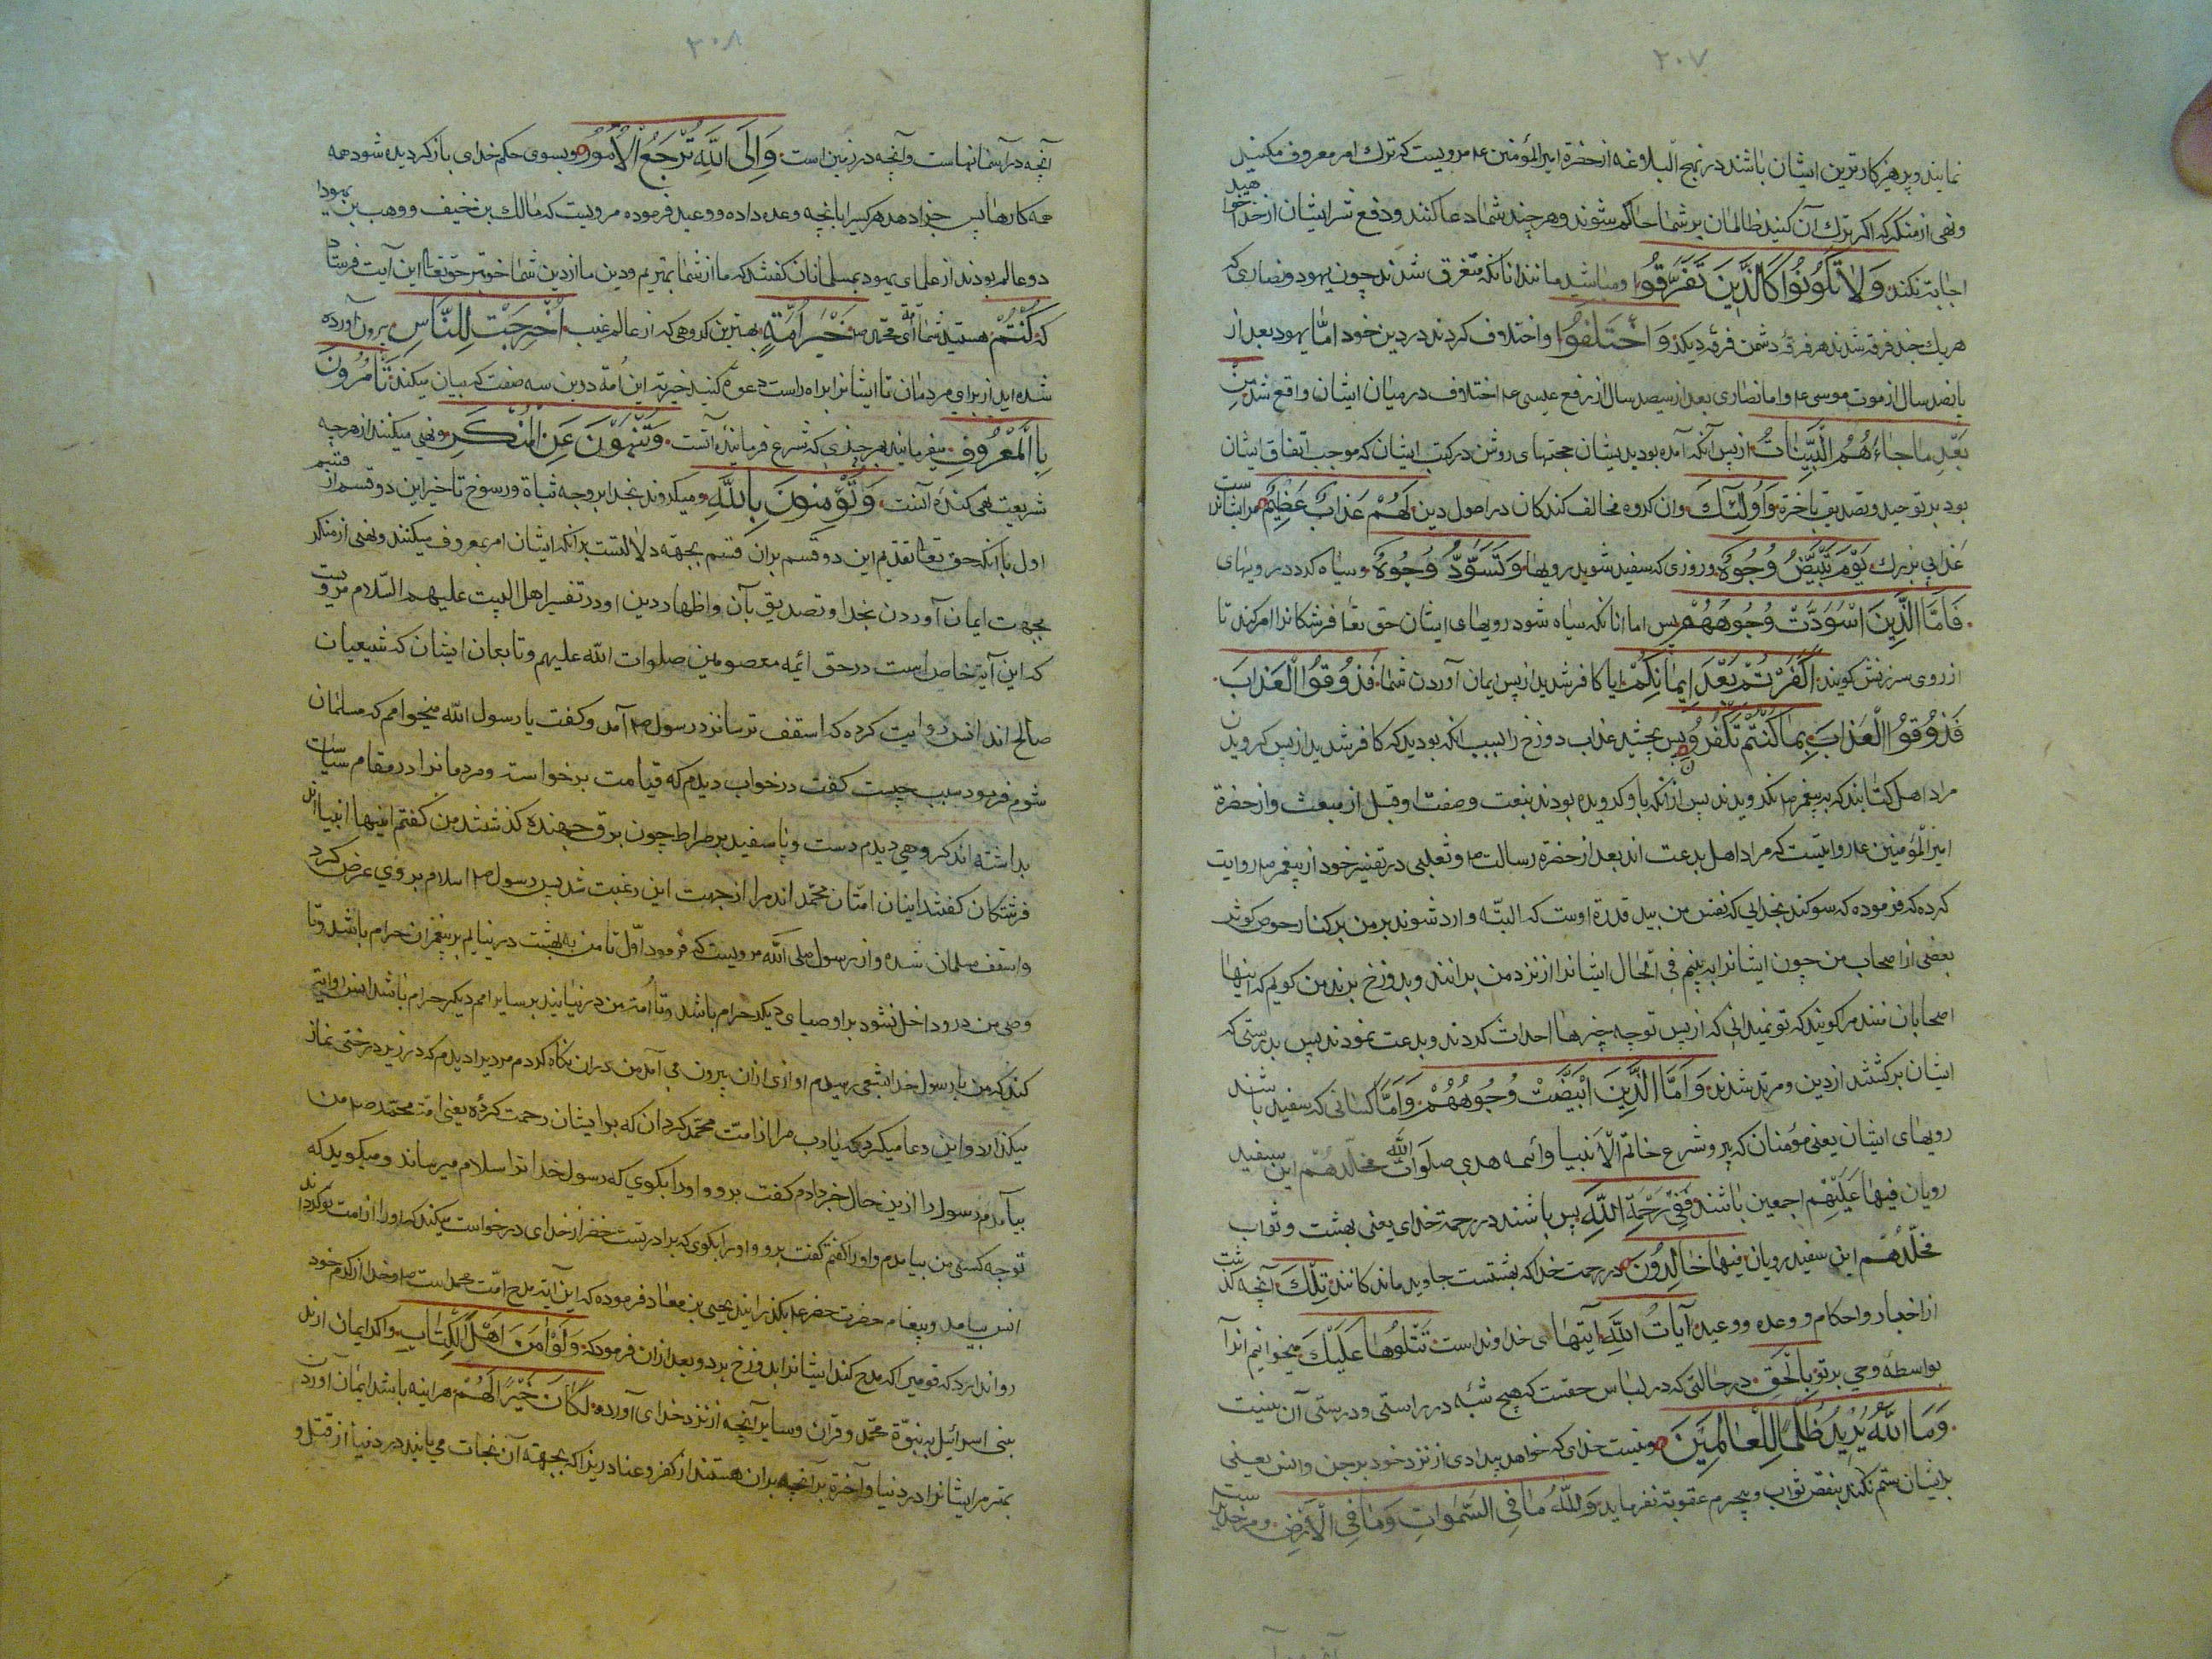 ۲۰۷
نمایند و پرهیز کارترین ایشان باشند در نهج البلاغه از حضرة امیر المؤمنین ع‍ مرویست که ترك امر معروف مکنید
و نهی از منکر که اکر ترك آن کنید ظالمان بر شما حاکم شوند و هر چند شما دعا کنند و دفع شر ایشان از خدا خواهید
اجابة نکند وَلاٰ تَكُونُوا كَالَّذِينَ تَفَرَّقُوا و مباشید مانند انانکه متفرق شدند چون یهود و نصاری که
هر یك چند فرقه شدند هر فرقۀ دشمن فرقۀ دیکر وَاخْتَلَفُوا و اختلاف کردند در دین خود امّا یهود بعد از
پانصد سال از موت موسی ع‍ و اما نصاری بعد از سیصد سال از رفع عیسی ع‍ اختلاف در میان ایشان واقع شد مِنْ
بَعْدِ مٰا جٰاءَهُمُ الْبَيِّنٰاتُ از پس آنکه آمده بود بدیشان حجتهای روشن در کتب ایشان که موجب اتفاق ایشان
بود بر توحید و تصدیق باخرة وَاُولٰئِكَ و ان کروه مخالف کنند کان در اصول دین لَهُمْ عَذٰابٌ عَظِيمٌ مر ایشانراست
عذابی بزرك يَوْمَ تَبْيَضُّ وُجُوهٌ و روزی که سفید شوید رویها وَتَسْوَدُّ وُجُوهٌ و سیاه کردد رویهای
فَاَمَّا الَّذِينَ اسْوَدَّتْ وُجُوهُهُمْ پس اما انانکه سیاه شود رویهای ایشان حق تعا فرشکانرا امر کند تا
از روی سرزنش کویند اَكَفَرْتُمْ بَعْدَ اِيمٰانِكُمْ ایا کافر شدید از پس ایمان آوردن شما فَذُوقُوا الْعَذٰابَ
فَذُوقُوا الْعَذٰابَ بِمٰا كُنْتُمْ تَكْفُرُونَ پس بچشید عذاب دوزخ را بسبب انکه بودید که کافر شدید از پس کرویدن
مراد اهل کتابند که به پیغمبر ص نکرویدند پس از انکه باو کرویده بودند بنعت و صفت او قبل از مبعث و از حضرة
امیر المؤمنین ع‍ روایتست که مراد اهل بدعت اند بعد از حضرة رسالت ص و ثعلبی در تفسیر خود از پیغمبر ص روایت
کرده که فرموده که سوکند بخدایی که نفس من بید قدرة اوست که البتّه وارد شوند بر من بر کنار حوض کوثر
بعضی از اصحاب من چون ایشانرا به بینم فی الحال ایشانرا از نزد من برانند و بدوزخ برند من کویم که اینها
اصحابان منند مرا کویند که تو نمیدانی که از پس تو چه چیزها احداث کردند و بدعت نمودند پس بدرستی که
ایشان برکشتند از دین و مرتد شدند وَاَمَّا الَّذِينَ ابْيَضَّتْ وُجُوهُهُمْ وَ اَمَّا کسانی که سفید باشند
رویهای ایشان یعنی مؤمنان که پیرو شرع خاتم الانبیا و ائمه هدی صلوات الله مخلّدهُم این سفید
رویان فیها عَلَیهِم اجمعین باشند فَفِي رَحْمَةِ اللّٰهِ پس باشند در رحمة خدای یعنی بهشت و ثواب
مخلّدهُم این سفید رویان فِيهٰا خٰالِدُونَ در رحمت خدا که بهشتست جاوید ماند کانند تِلْكَ آنچه کذشت
از اخبار و احکام و وعده و وعید آيٰاتُ اللّٰهِ آیتهای خداونداست نَتْلُوهٰا عَلَيْكَ میخوانیم انرا
بواسطۀ وحی بر تو بِالْحَقِّ در حالتی که در لباس حقست که هیچ شبه در راستی و درستی آن نیست
وَمَا اللّٰهُ يُرِيدُ ظُلْمًا لِلْعٰالَمِينَ و نیست خدای که خواهد بیدادی از نزد خود بر جن و انس یعنی
بدیشان ستم نکند بنقص ثواب و بیجرم عقوبة نفرماید وَلِلّٰهِ مٰا فِي السَّمٰوٰاتِ وَمٰا فِي الْاَرْضِ و مر خدایراست
۲۰۸
آنچه در آسمانهاست و آنچه در زمین است وَاِلَى اللّٰهِ تُرْجَعُ الْاُمُورُ و بسوی حکم خدای باز کردیده شود همه
همه کارها پس جزا دهد هر کسیرا بانچه وعده داده و وعید فرموده مرویست که مالك بن خیف و وهب بن یهودا
دو عالم بودند از علمای یهود بمسلمانان کفتند که ما از شما بهتریم و دین ما از دین شما خوبتر حق تعا این آیت فرستاد
که كُنْتُمْ هستید شما ای امّة محمد ص خَيْرَ اُمَّةٍ بهترین کروهی که از عالم غیب اُخْرِجَتْ لِلنّٰاسِ بیرون آورده
شده اید از برای مردمان تا ایشانرا براه راست دعوة کنید خیریة این امّة درین سه صفت که بیان میکند تَأْمُرُونَ
بِالْمَعْرُوفِ میفرمایند بهر چیزی که شرع فرمایندۀ آنست وَتَنْهَوْنَ عَنِ الْمُنْكَرِ و نهی میکنند از هر چه
شریعت نهی کنندۀ آنست وَتُؤْمِنُونَ بِاللّٰهِ و میکروند بخدا بر وجه ثباة و رسوخ تاخیر این دو قسم از قسم
اول با انکه حق تعا تقدیم این دو قسم بران قسم بجهة دلالتست بر انکه ایشان امر بمعروف میکنند و نهی از منکر
بجهت ایمان آوردن بخدا و تصدیق بآن و اظهار دین او در تفسیر اهل البیت علیهم السّلام مرویست
که این آیة خاص است در حق ائمه معصومین صلوات الله علیهم و تابعان ایشان که شیعیان
صالح اند انس روایت کرده که اسقف ترسا نزد رسول ص آمد و کفت یا رسول الله میخواهم که مسلمان
شوم فرمود سبب چیست کفت در خواب دیدم که قیامت برخواسته و مردمانرا در مقام سیاست
بداشته اند کروهی دیدم دست و پا سفید بر صراط چون برق جهنده کذشتند من کفتم اینها انبیا اند
فرشتکان کفتند اینان امتان محمّد اند مرا از جهت این رغبت شد پس رسول ص اسلام بر وی عرض کرد
و اسقف مسلمان شده و از رسول صلی الله مرویست که فرمود اوّل تا من به بهشت در نیایم بر پیغمبران حرام باشد و تا
وصی من درو داخل نشود بر اوصیای دیکر حرام باشد و تا امّة من در نیایند بر سایر امم دیکر حرام باشد انس روایة
کند که من با رسول خدا بشعبی رسیدم اوازی ازان بیرون می آمد من دران نکاه کردم مردیرا دیدم که در زیر درختی نماز
میکذارد و این دعا میکرد که یا رب مرا از امّت محمّد کردان که بر ایشان رحمت کردۀ یعنی امّت محمّد ص من
بیآمدم رسول را ازین حال خبر دادم کفت برو و او را بکوی که رسول خدا ترا سلام میرساند و میکوید که
تو چه کسی من بیامدم و او را کفتم کفت برو و او را بکوی که برادرتست خضر از خدای درخواست میکند که او را از امت تو کرداند
انس بیامد و پیغام حضرت خضر ع‍ بکذرانید یحیی بن معاد فرموده که این آیه مدح امّت محمد است ص و خدا از کرم خود
روا ندارد که قومیرا که مدح کند ایشانرا بدوزخ برد و بعد ازان فرمود که وَلَوْ اٰمَنَ اَهْلُ الْكِتٰابِ و اکر ایمان ارند
بنی اسرائیل به نبوّة محمّد و قران و سایر آنچه از نزد خدای آورده لَكٰانَ خَيْرًا لَهُمْ هر اینه باشد ایمان آوردن
بهتر مر ایشانرا در دنیا و آخرة بر آنچه بران هستند از کفر و عناد زیرا که بجهة آن نجات می یابند در دنیا از قتل و